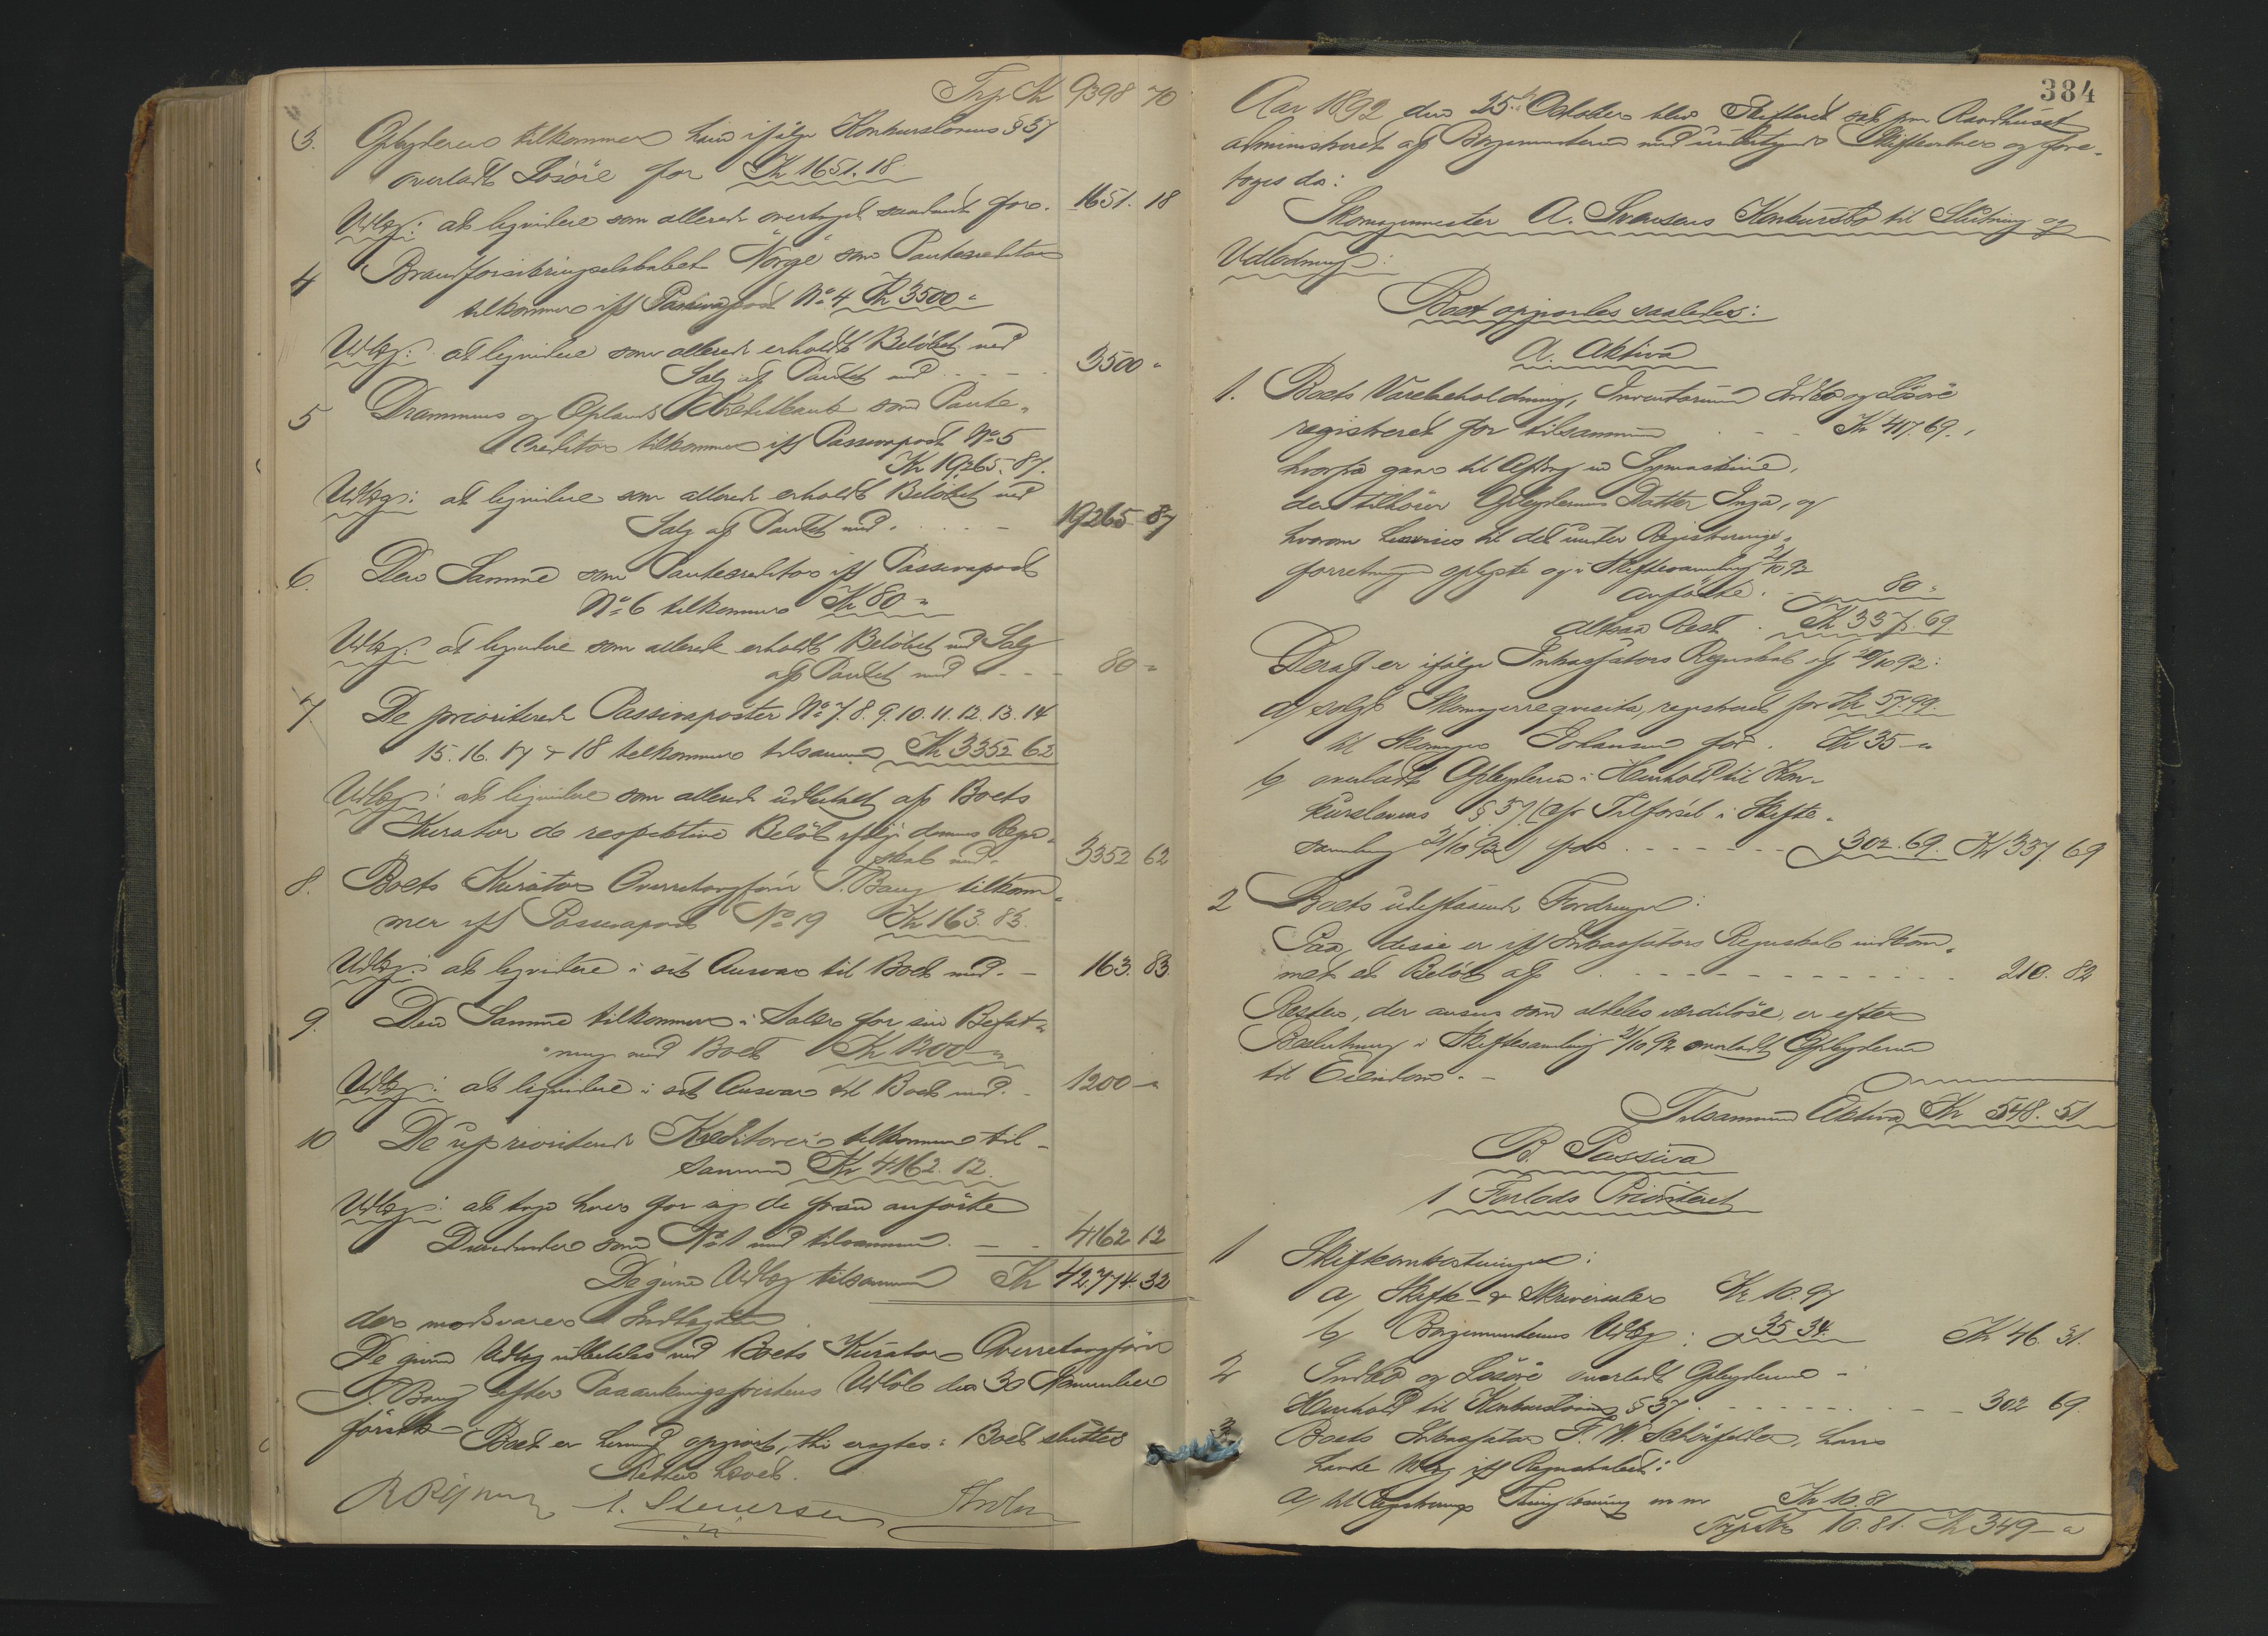 Trp Kr 9398 70
3. Opbyderen tilkommer hane ifølge Konkurslovens § 37
overladt Løsøre for Kr 1651. 18
Udlæg: at ligvidere som allerede overtaget saadant for. 1651. 18
4 Brandforsikringselskabet "Norge" som Pantecreditor
tilkommer iflg Passivapost No 4 Kr 3500 "
Udlæg: at ligvidere som allerede erholdt Beløbet ved
Salg af Pantet med - - - 3500 "
5 Drammens og Oplands Kreditbank som Pante-
creditor tilkommer iflg Passivapost No 5
Kr 19265. 87.
Udlæg: at ligvidere som allerede erholdt Beløbet ved
Salg af Pantet med. - 19265 87
6. Den Samme som Pantecreditor iflg Passivapost
No 6 tilkommer Kr 80 "
Udlæg: at ligvidere som allerede erholdt Beløbet ved Salg
af Pantet med - - - 80 "
7 De prioriterede Passivaposter No 7. 8. 9. 10. 11. 12. 13. 14
15. 16. 17 & 18 tilkommer tilsammen Kr 3352 62
Udlæg: at ligvidere som allerede udbetalt af Boets
Kurator de respektive Beløb iflg dennes Regn-
skab med. 3352 62
8. Boets Kurator Overretssagfører T. Baug tilkom-
mer iflg Passivapost No 19 Kr 163. 83.
Udlæg: at ligvidere i sit Ansvar til Boet med. - 163. 83.
9. Den Samme tilkommer i Salær for sin Befat-
ning med Boet Kr 1200 - "
Udlæg: at ligvidere i sit Ansvar til Boet med. - 1200 - "
10 De uprioriterede Kreditorer tilkommer til-
sammen Kr 4162. 12.
Udlæg: at tage hver for sig de foran anførte
Dividender som No 1 med tilsammen. - - 4162 12
De givne Udlæg tilsammen Kr 42,774. 32
der modsvarer Indtægten
De givne Udlæg udbetales ved Boets Kurator Overretssagfører
T. Baug efter Paaankningsfristens Udløb den 30 November
førstk. Boet er hermed opgjort, thi eragtes: Boet sluttes
Retten hævet.
384
Aar 1892 den 25de October blev Skifteret sat paa Raadhuset
administreret af Borgemesteren med undertegnede Skifteskriver og fore-
toges da:
Skomagermester A. Svensens Konkursbo til Slutning og
Udlodning:
Boet opgjordes saaledes:
A. Aktiva
1. Boets Varebeholdning, Inventarium Indbo og Løsøre
registreret for tilsammen - - Kr 417. 69.
hvorfra gaar til Afdrag en Symaskine,
der tilhører Opbyderens Datter Inga, og
hvorom henvises til det under Registrerings-
forretningen oplyste og i Skiftesamling 21/10 92
anførte. - 80 "
altsaa Rest. Kr 337. 69
Deraf er ifølge Inkassators Regnskab af 20/10 92:
a) solgt Skomagerreqvisita, registreret for Kr 57. 99.
til Skomager Johansen for. Kr 35 - "
b) overladt Opbyderen i Henhold til Kon-
kurslovens § 37 (cfr Tilførsel i Skifte-
samling 21/10 92) for - - - - - 302. 69. Kr 337 69
2 Boets udestaaende Fordringer:
Paa disse er iflg Inkassators Regnskab indkom-
met et Beløb af - - - - - - - - 210. 82
Resten, der ansees som aldeles værdiløse, er efter
Beslutning i Skiftesamling 21/10 92 overladt Opbyderen
til Eiendom. -
Tilsammen Aktiva Kr 548. 51
B. Passiva
1 Forlods Prioriteret
1 Skifteomkostninger:
a) Skifte- & Skriversalær Kr 10. 97
b) Borgemesterens Udlæg: 35 34. Kr 46. 31.
2 Indbo og Løsøre overladt Opbyderen i
Henhold til Konkurslovens § 37. - - - - - - - 302 69.
3. Boets Inkassator F. W. Schönfelder, hans
havte Udlæg iflg Regnskabet:
a) til Registrerings Thinglæsning m m Kr 10. 81
Trpt Kr 10. 81. Kr 349 - "